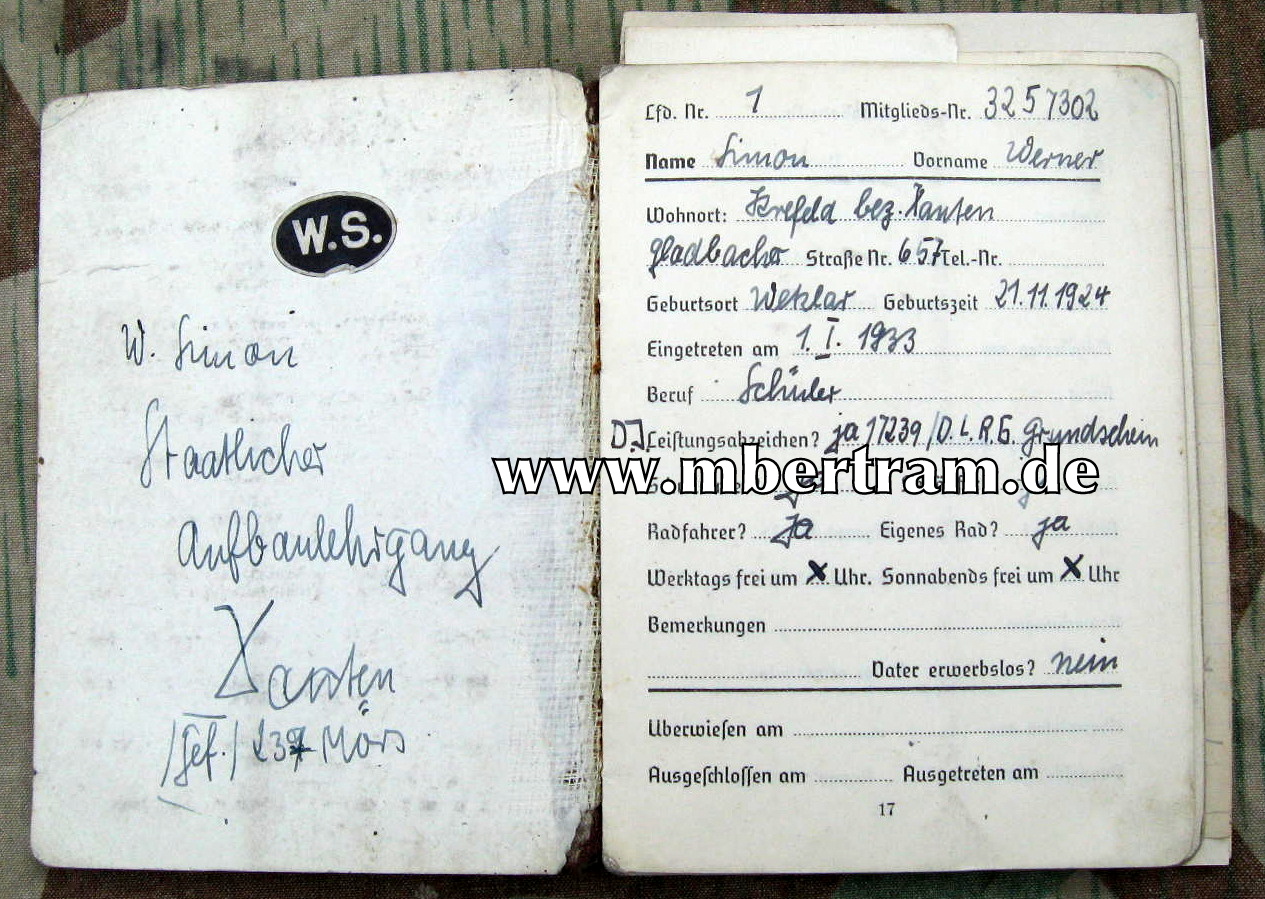 W.S.
W. Simon
Staatlicher
Aufbaulehrgang
Xanten
/Gef./ 239 Mörs
Lfd. Nr. 1 Mitglieds-Nr. 3257302
Name Simon Vorname Werner
Wohnort: Krefeld bez. Xanten
Gladbacher Straße Nr. 657 Tel.-Nr.
Geburtsort Wetzlar Geburtszeit 21.11.1924
Eingetreten am 1. I. 1933
Beruf Schüler
D.J. Leistungsabzeichen? ja 17239 / D.L.R.G. Grundschein
www.mbertram.de
Radfahrer? Ja Eigenes Rad? ja
Werktags frei um X Uhr. Sonnabends frei um X Uhr
Bemerkungen
Vater erwerbslos? nein
Überwiesen am
Ausgeschlossen am Ausgetreten am
17